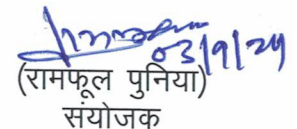 03/9/24
(रामफूल पुनिया)
संयोजक